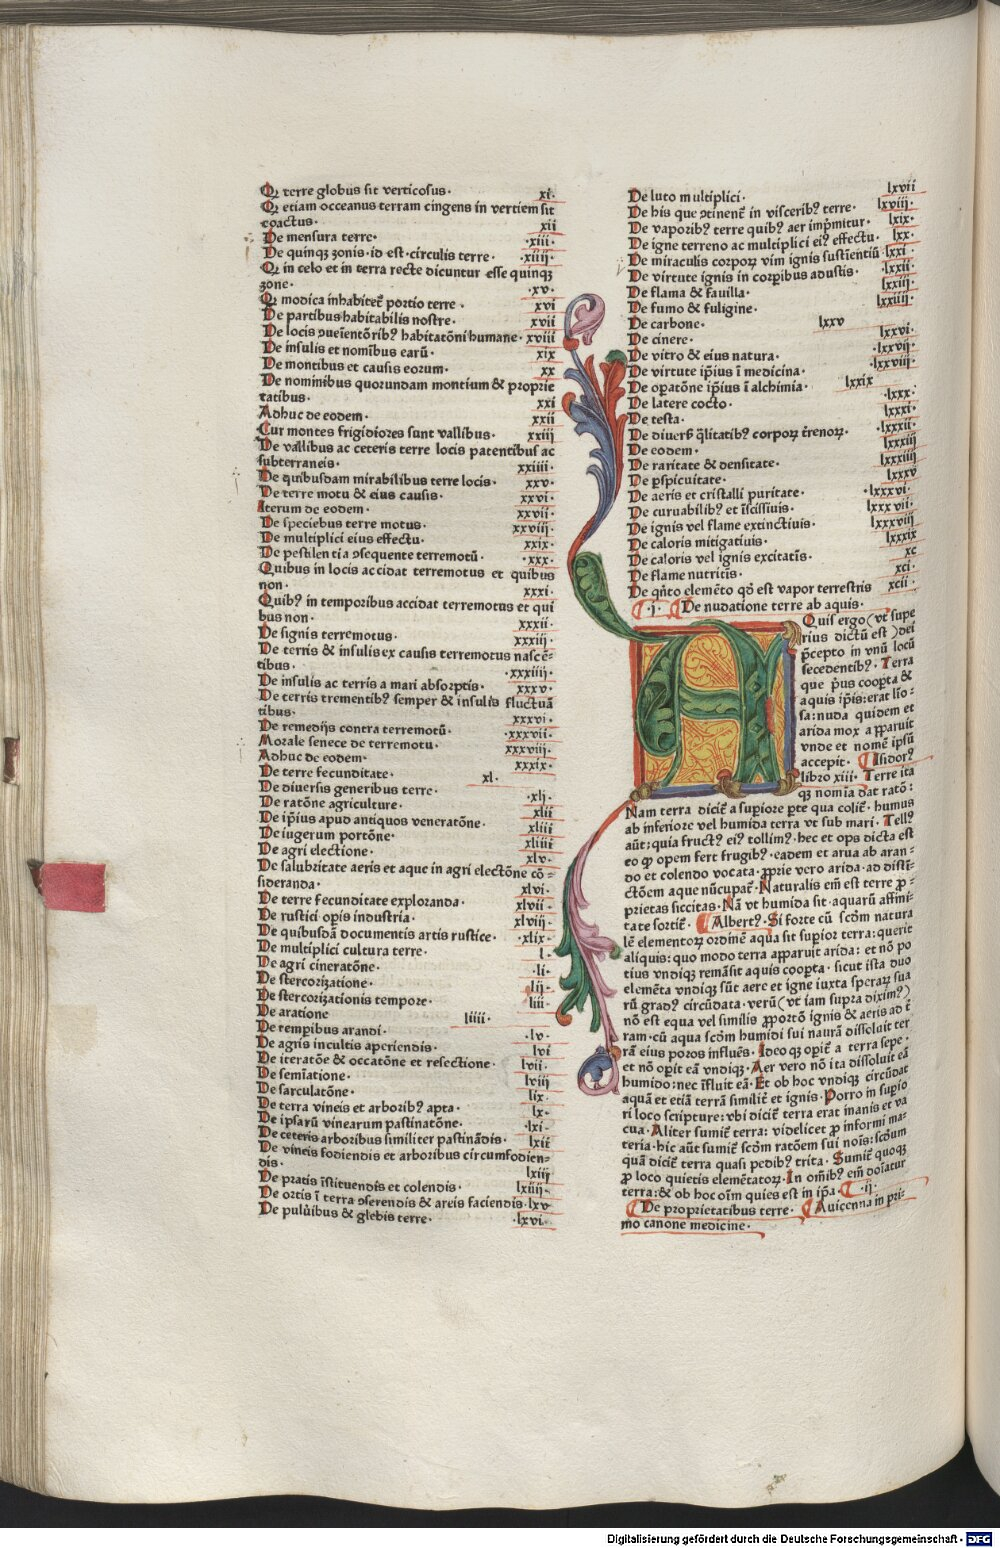 Qꝫ terre globus sit verticosus· xi·
Qꝫ etiam occeanus terram cingens in vertiem sit
coactus· xii
De mensura terre· ·xiii·
De quinqꝫ zonis·id est·circulis terre· ·xiiij·
Qꝫ in celo et in terra recte dicuntur esse quinqꝫ
zone· ·xv·
Qꝫ modica inhabitet̃ portio terre· xvi
De partibus habitabilis nostre· xvii
De locis ꝯueĩentõribꝰ habitatõni humane· xviii
De insulis et nomĩbus earũ· xix
De montibus et causis eorum· xx
De nominibus quorundam montium & proprie
tatibus· xxi
Adhuc de eodem· xxii
Cur montes frigidiores sunt vallibus· xxiij
De vallibus ac ceteris terre locis patentibus ac
subterraneis· xxiiii·
De quibusdam mirabilibus terre locis· xxv·
De terre motu & eius causis· xxvi·
Iterum de eodem· xxvii·
De speciebus terre motus· xxviij·
De multiplici eius effectu· xxix·
De pestilentia ꝯsequente terremotũ· ·xxx·
Quibus in locis accidat terremotus et quibus
non· xxxi·
Quibꝰ in temporibus accidat terremotus et qui
bus non· xxxii·
De signis terremotus· xxxiij·
De terris & insulis ex causis terremotus nascẽ-
tibus· ·xxxiiij·
De insulis ac terris a mari absorptis· xxxv·
De terris trementibꝰ semper & insulis fluctuã
tibus· xxxvi·
De remedijs contra terremotũ· ·xxxvii·
Morale senece de terremotu· xxxviij·
Adhuc de eodem· xxxix·
De terre fecunditate· xl·
De diuersis generibus terre· ·xlj·
De ratõne agriculture· xlii
De ip̃ius apud antiquos veneratõne· xliii
De iugerum portõne· xliiii
De agri electione· xlv·
De salubritate aeris et aque in agri electõne cõ-
sideranda· xlvi·
De terre fecunditate exploranda· xlvii·
De rustici oꝑis industria· xlviij·
De quibusdã documentis artis rustice· ·xlix·
De multiplici cultura terre· l·
De agri cineratõne· ·li·
De stercorizatione· lij·
De stercorizationis tempore· liii·
De aratione liiii·
De tempibus arandi· ·lv·
De agris incultis aperiendis· lvi
De iteratõe & occatõne et resectione· lvii·
De semĩatione· lviii
De sarculatõne· lix·
De terra vineis et arboribꝰ apta· lx·
De ipsarũ vinearum pastinatõne· ·lxi·
De ceteris arboribus similiter pastinãdis· lxii
De vineis fodiendis et arboribus circumfodien-
dis· lxiij
De pratis ĩstituendis et colendis· lxiiij·
De ortis ĩ terra ꝯserendis & areis faciendis· lxv
De puluibus & glebis terre· ·lxvi·
De luto multiplici· lxvii
De his que ꝯtinent̃ in visceribꝰ terre· lxviij·
De vaporibꝰ terre quibꝰ aer imp̃mitur· lxix·
De igne terreno ac multiplici eiꝰ effectu· lxx·
De miraculis corporꝝ vim ignis sustĩentiũ lxxi·
De virtute ignis in corꝑibus adustis· ·lxxii·
De flama & fauilla· lxxiij·
De fumo & fuligine· lxxiiij·
De carbone· lxxv
De cinere· lxxvi·
De vitro & eius natura· ·lxxvij·
De virtute ip̃ius ĩ medicina· ·lxxviij·
De oꝑatõne ip̃ius ĩ alchimia· lxxix
De latere cocto· ·lxxx·
De testa· lxxxi·
De diuersꝭ q̃litatibꝰ corporꝝ t̃renoꝝ· ·lxxxii·
De eodem· lxxxiij
De raritate & densitate· lxxxiiij
De ꝑspicuitate· lxxxv
De aeris et cristalli puritate· ·lxxxvi·
De curuabilibꝰ et ĩscissiuis· lxxxvii·
De ignis vel flame extinctiuis· lxxxviij
De caloris mitigatiuis· lxxxix
De caloris vel ignis excitatĩs· xc
De flame nutritĩs· xci·
De qñto elemẽto qđ est vapor terrestris xcii·
·i· De nudatione terre ab aquis·
AQuis ergo (vt supe
rius dictũ est) dei
p̃cepto in vnũ locũ
secedentibꝰ· Terra
que pꝰus cooꝑta &
aquis ip̃is: erat lĩo-
sa: nuda quidem et
arida mox apparuit
vnde et nomẽ ipsũ
accepit· Isidorꝰ
libro xiii· Terre ita
qꝫ nomĩa dat ratõ:
Nam terra dicit̃ a suꝑiore ꝑte qua colit̃· humus
ab inferiore vel humida terra vt sub mari· Tellꝰ
aũt: quia fructꝰ eiꝰ tollimꝰ· hec et ops dicta est
eo ꝙ opem fert frugibꝰ· eadem et arua ab aran-
do et colendo vocata· ꝓprie vero arida· ad distĩ-
ctõem aque nũcupat̃· Naturalis em̃ est terre ꝓ-
prietas siccitas· Nã vt humida sit· aquarũ affini-
tate sortit̃· Albertꝰ· Si forte cũ scđm natura
lẽ elementorꝝ ordinẽ aqua sit suꝑior terra: querit
aliquis: quo modo terra apparuit arida: et nõ po
tius vndiqꝫ remãsit aquis cooꝑta· sicut ista duo
elemẽta vndiqꝫ sũt aere et igne iuxta sperarꝝ sua
rũ gradꝰ circũdata· verũ (vt iam supra diximꝰ)
nõ est equa vel similis ꝓportõ ignis & aeris ad t̃
ram· cũ aqua scđm humidi sui naturã dissoluit ter
rã eius poros influẽs· Ideo qꝫ oꝑit̃ a terra sepe·
et nõ oꝑit eã vndiqꝫ· Aer vero nõ ita dissoluit eã
humido: nec ĩfluit eã· Et ob hoc vndiqꝫ circũdat
aquã et etiã terrã similit̃ et ignis· Porro in suꝑio
ri loco scripture: vbi dicit̃ terra erat inanis et va
cua· Aliter sumit̃ terra: videlicet ꝓ informi ma-
teria· hic aũt sumit̃ scđm ratõem sui nois: scđum
quã dicit̃ terra quasi pedibꝰ trita· Sumit̃ quoqꝫ
ꝓ loco quietis elemẽtatorꝝ· In om̃ibꝰ em̃ doĩatur
terra: & ob hoc oĩm quies est in ip̃a· ·ij·
De proprietatibus terre· Auicenna in pri-
mo canone medicine·
Digitalisierung gefördert durch die Deutsche Forschungsgemeinschaft - DFG